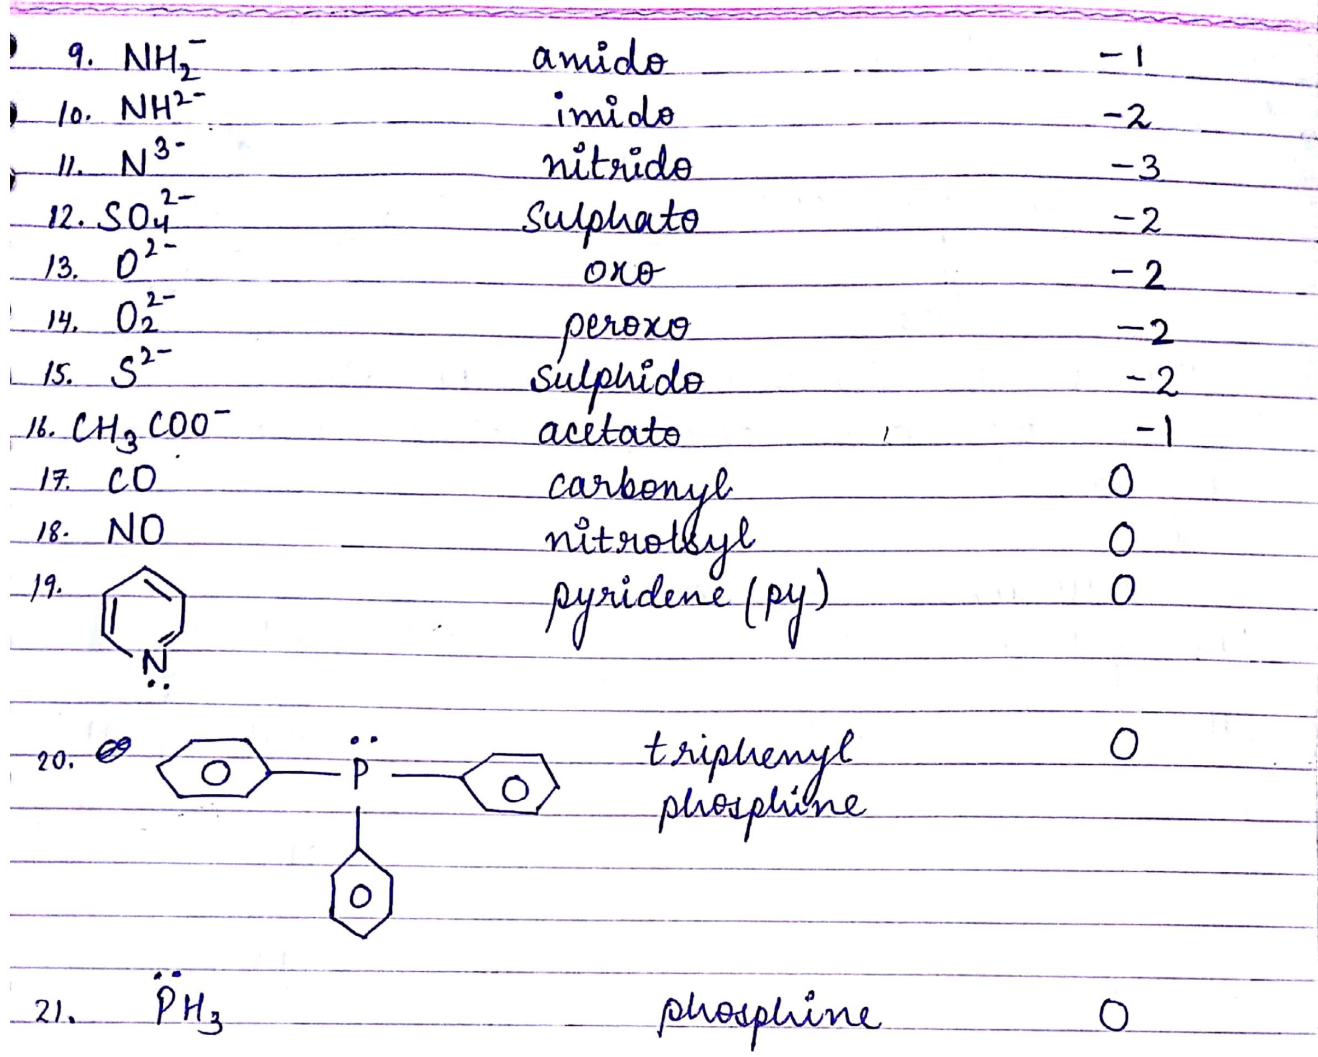 9. NH₂⁻ amido -1
10. NH²⁻ imido -2
11. N³⁻ nitrido -3
12. SO₄²⁻ Sulphato -2
13. O²⁻ oxo -2
14. O₂²⁻ peroxo -2
15. S²⁻ Sulphido -2
16. CH₃COO⁻ acetato -1
17. CO carbonyl 0
18. NO nitrosyl 0
19. pyridene (py) 0
N
20. P triphenyl 0
phosphine
21. PH₃ phosphine 0